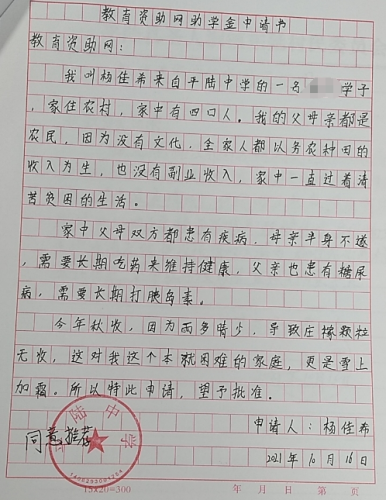 教育资助网助学金申请书
教育资助网：
我叫杨佳希来自平陆中学的一名 学子
，家住农村，家中有四口人。我的父母亲都是
农民，因为没有文化，全家人都以务农种田的
收入为生，也没有副业收入，家中一直过着清
苦贫困的生活。
家中父母双方都患有疾病，母亲半身不遂
，需要长期吃药来维持健康，父亲也患有糖尿
病，需要长期打胰岛素。
今年秋收，因为雨多晴少，导致庄稼颗粒
无收，这对我这个本就困难的家庭，更是雪上
加霜。所以特此申请，望予批准。
申请人：杨佳希
同意推荐
陆中学
2021年10月16日
15×20=300
年 月 日 第 页